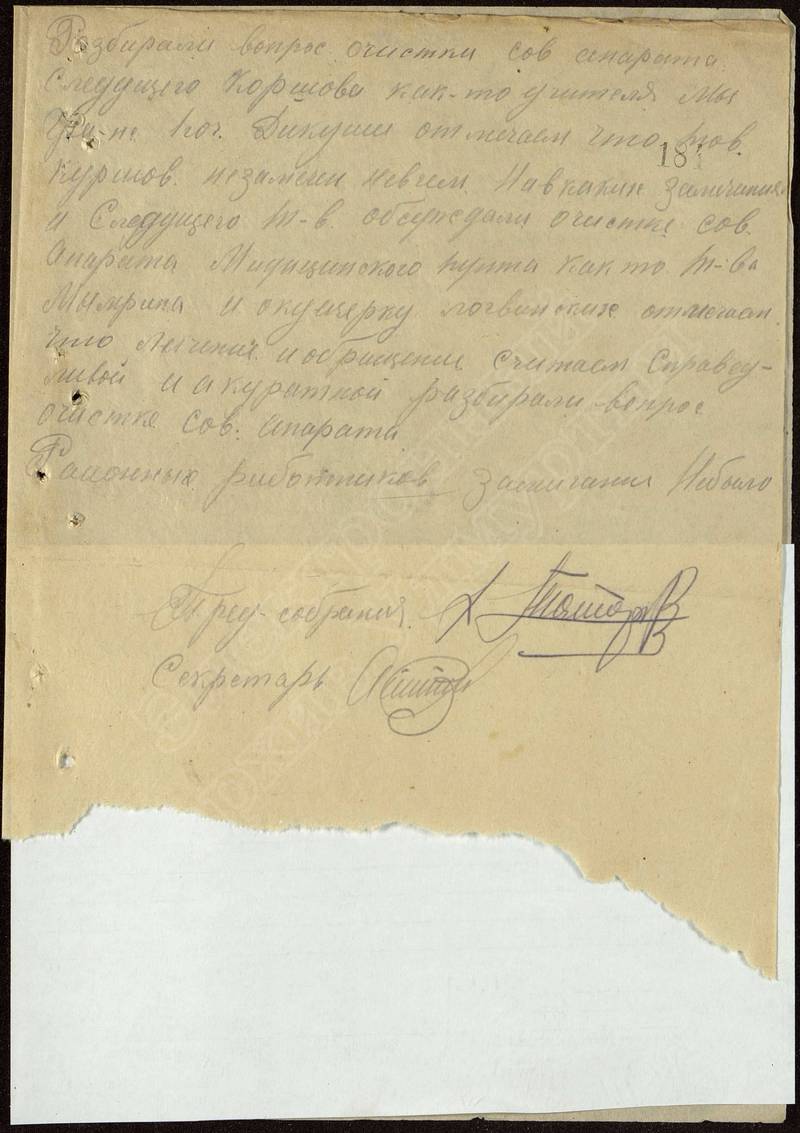 Разбирали вопрос очистки сов апарата
Следущего Коршова как-то учителя мы
Дикуши отмечаем что тов.
181
Куршов. незамечен невчем. Навкаких замечания
и Следущего т-в. обсуждали очистке сов.
Апарата Мидицинского пункта как то т-ва
и окушерку отмечаем
что лечение и обращение считаем Справед-
ливой и акуратной разбирали-вопрос
очистке сов. апарата
Районных работников замечания Небыло
Пред-собрания.
Секретарь